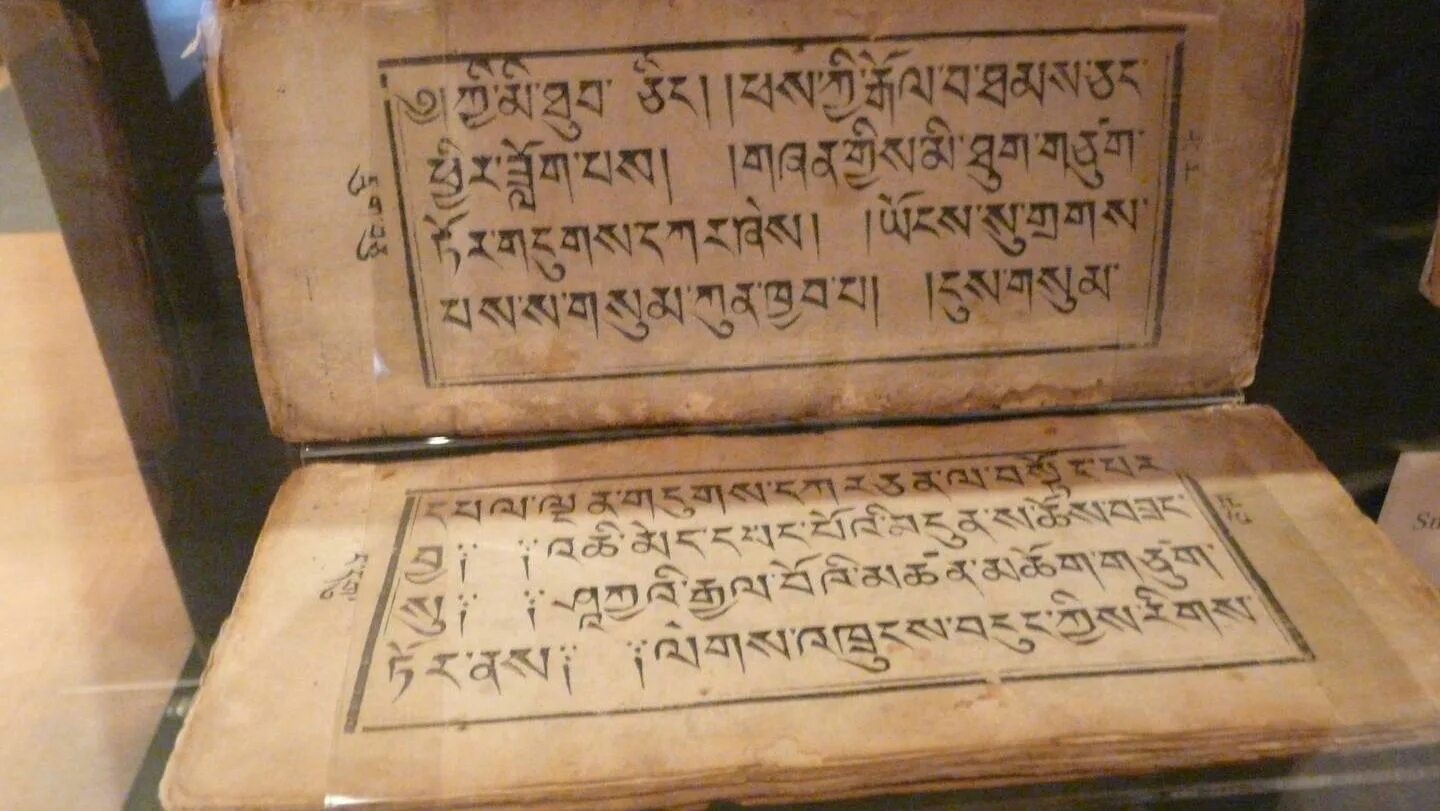 ༄། ཀྱི་མི་ཐུབ་ ཅིང། །ཕས་ཀྱི་རྒོལ་བ་ཐམས་ཅད་
ཕྱིར་ཟློག་པས། །གཞན་གྱིས་མི་ཐུག་གཙུག་
ཏོར་གདུགས་དཀར་ཞེས། །ཡོངས་སུ་གྲགས་
པས་ས་གསུམ་ཀུན་ཁྱབ་པ། །དུས་གསུམ་
དཔལ་ལྡན་གདུགས་དཀར་ཅན་ལ་བསྟོད་པར་
༔ ༔འཆི་མེད་དབང་པོའི་མདུན་ས་ཆོས་བཟང་
༔ ༔ཤཱཀྱའི་རྒྱལ་པོའི་མཚན་མཆོག་གཙུག་
ཏོར་ནས༔ ༔ལེགས་འཁྲུངས་བདུད་ཀྱིས་རིགས་